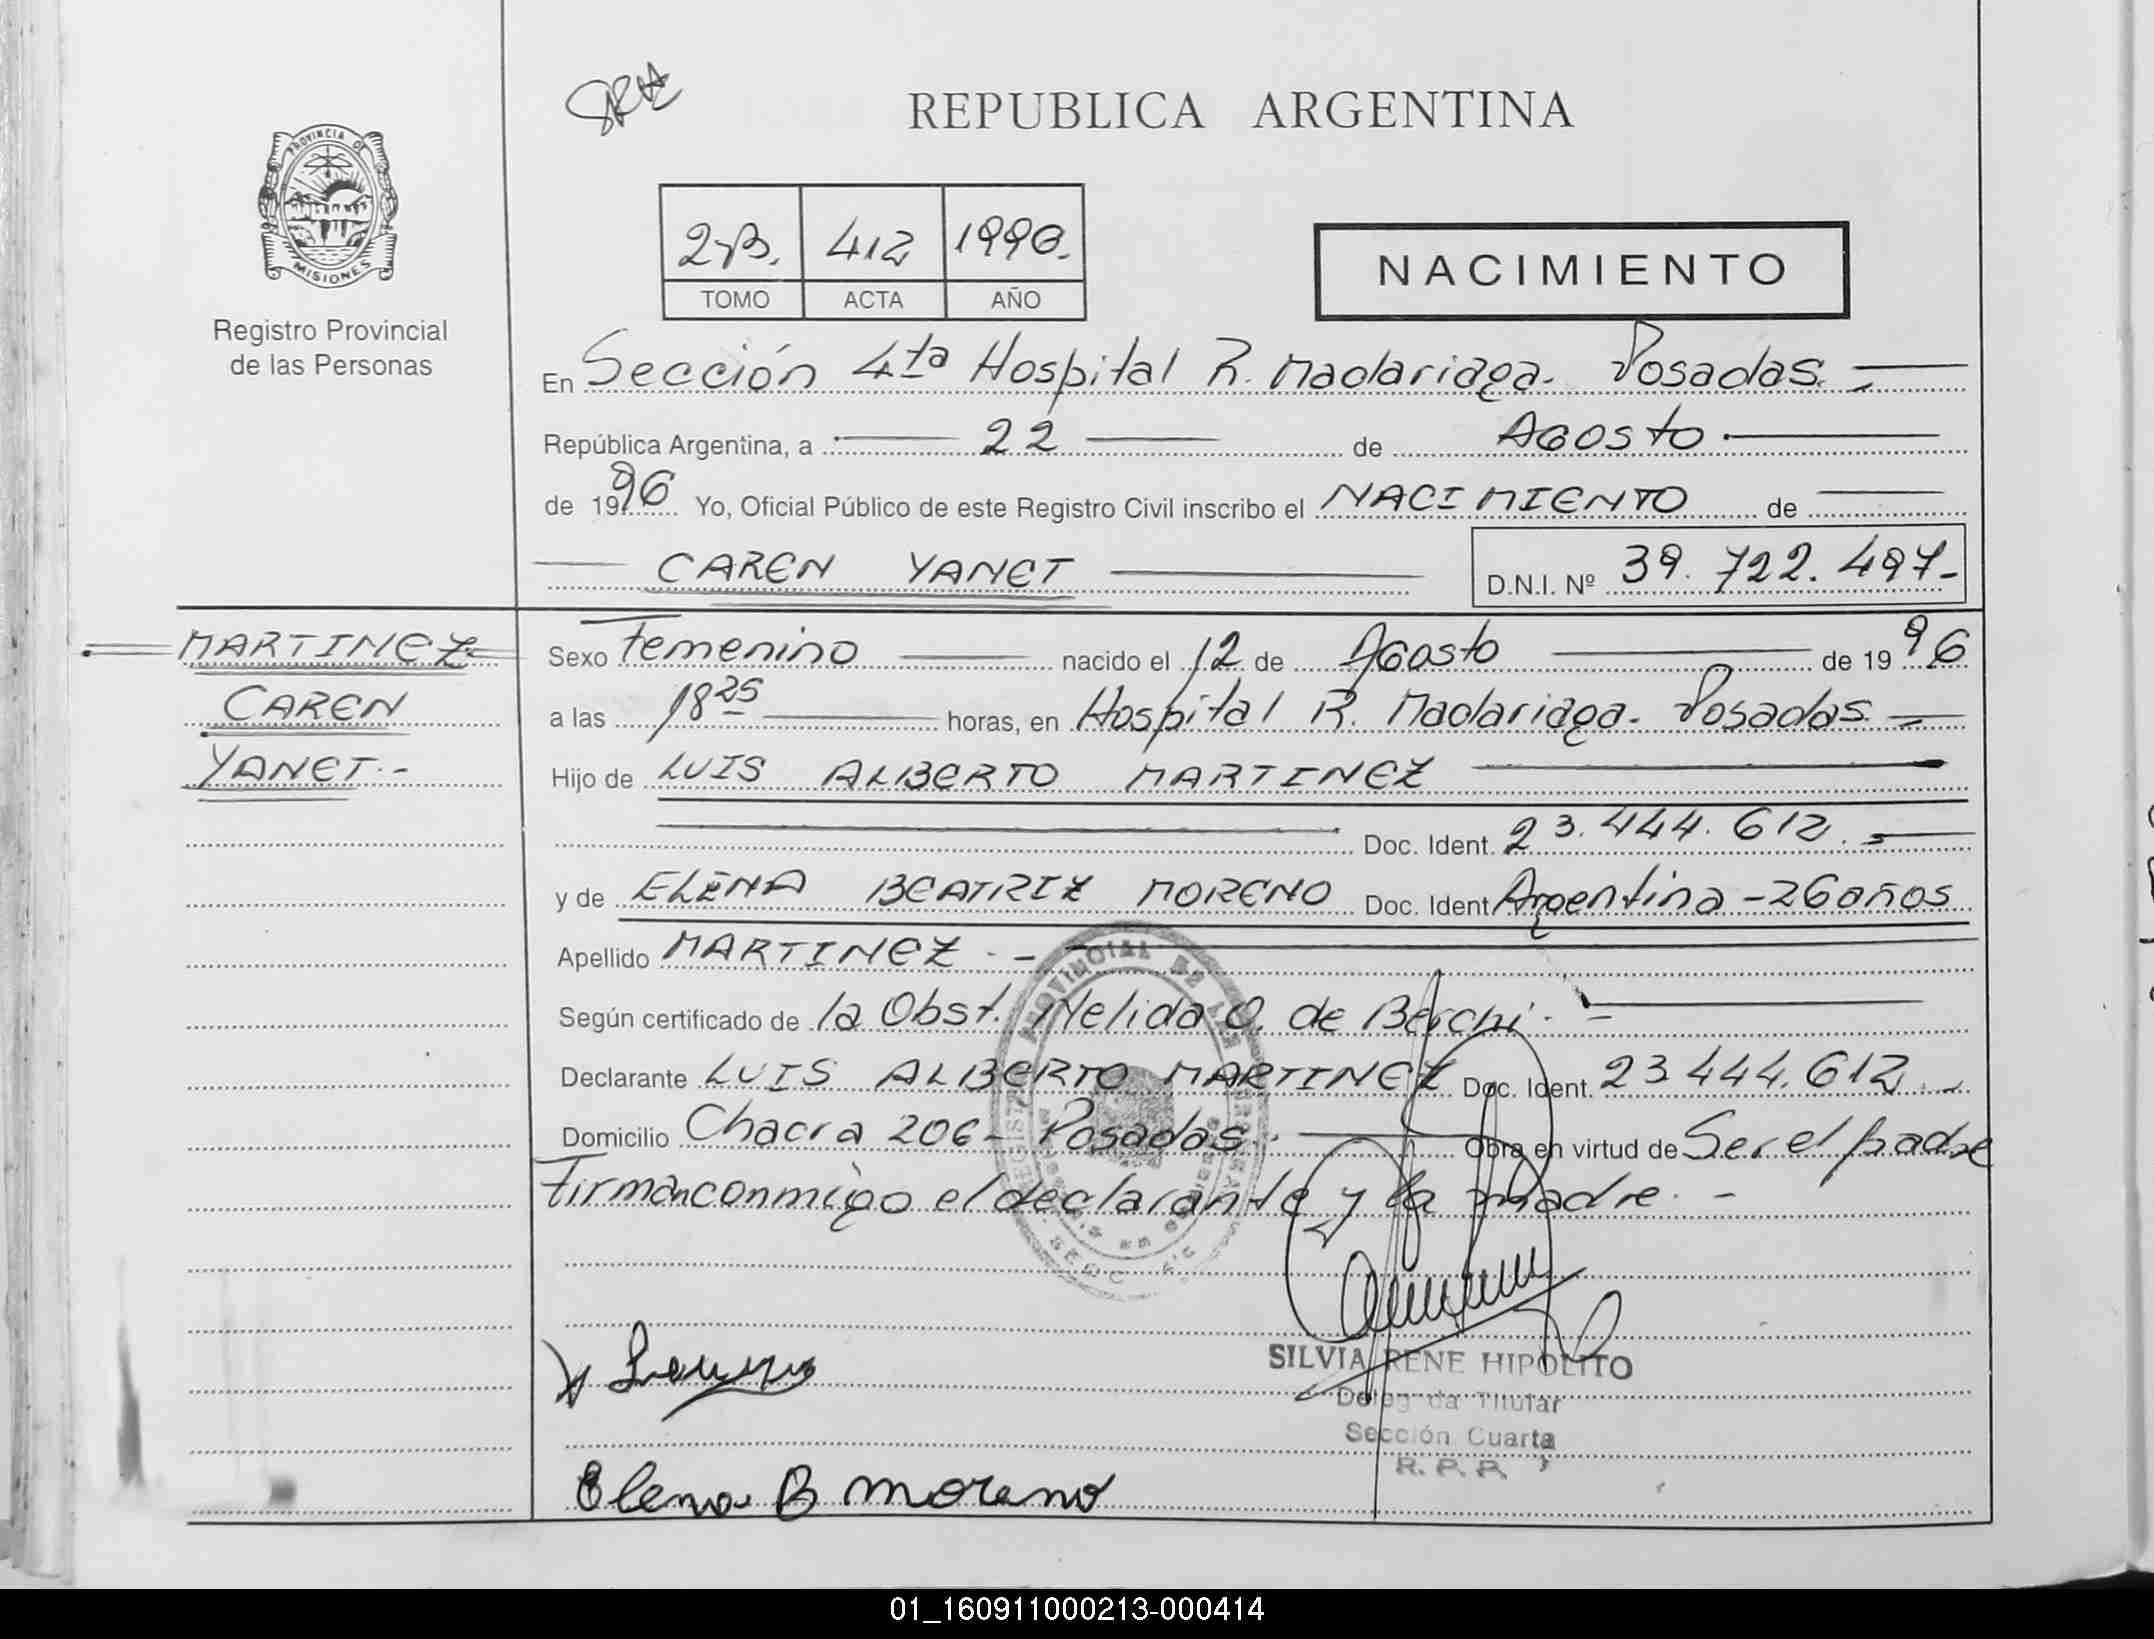 REPUBLICA ARGENTINA
PROVINCIA DE
MISIONES
Registro Provincial
de las Personas
2-B. 412 1996.
TOMO ACTA AÑO
NACIMIENTO
En Sección 4ta Hospital R. Madariaga. Posadas. -
República Argentina, a 22 de Agosto
de 1996 Yo, Oficial Público de este Registro Civil inscribo el NACIMIENTO de
CAREN YANET D.N.I. Nº 39.722.497-
MARTINEZ
CAREN
YANET.-
Sexo Femenino nacido el 12 de Agosto de 1996
a las 18 25 horas, en Hospital R. Madariaga. Posadas. -
Hijo de LUIS ALBERTO MARTINEZ
Doc. Ident. 23.444.612.-
y de ELENA BEATRIZ MORENO Doc. Ident Argentina - 26 años
Apellido MARTINEZ.-
Según certificado de la Obst. Nelida O. de Berchi. -
Declarante LUIS ALBERTO MARTINEZ Doc. Ident. 23.444.612. -
Domicilio Chacra 206- Posadas. Obra en virtud de Ser el padre
Firman conmigo el declarante y la madre. -
SILVIA RENE HIPOLITO
Delegada Titular
Sección Cuarta
R. P. P.
Elena B moreno
01_160911000213-000414